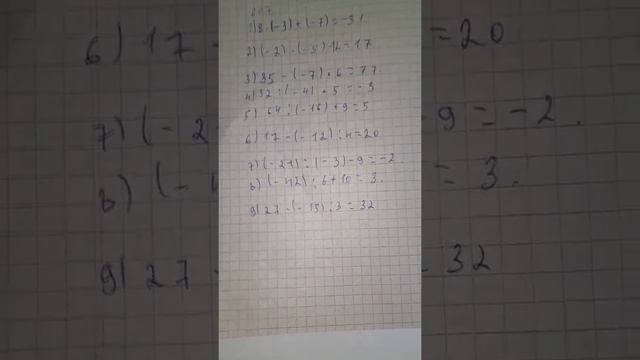 1) 8·(-3)+(-7)=-31
2) (-2)-(-5)·12=17
3) 35-(-7)·6=77.
4) 32:(-4)·5=-3
5) 64:(-16)+9=5
6) 17-(-12):4=20
7) (-21):(-3)-9=-2
8) (-42):6+10=3.
9) 27-(-15):3=32
6) 17 - =20
7) (-2 9=-2.
8) (- =3.
9) 27 32